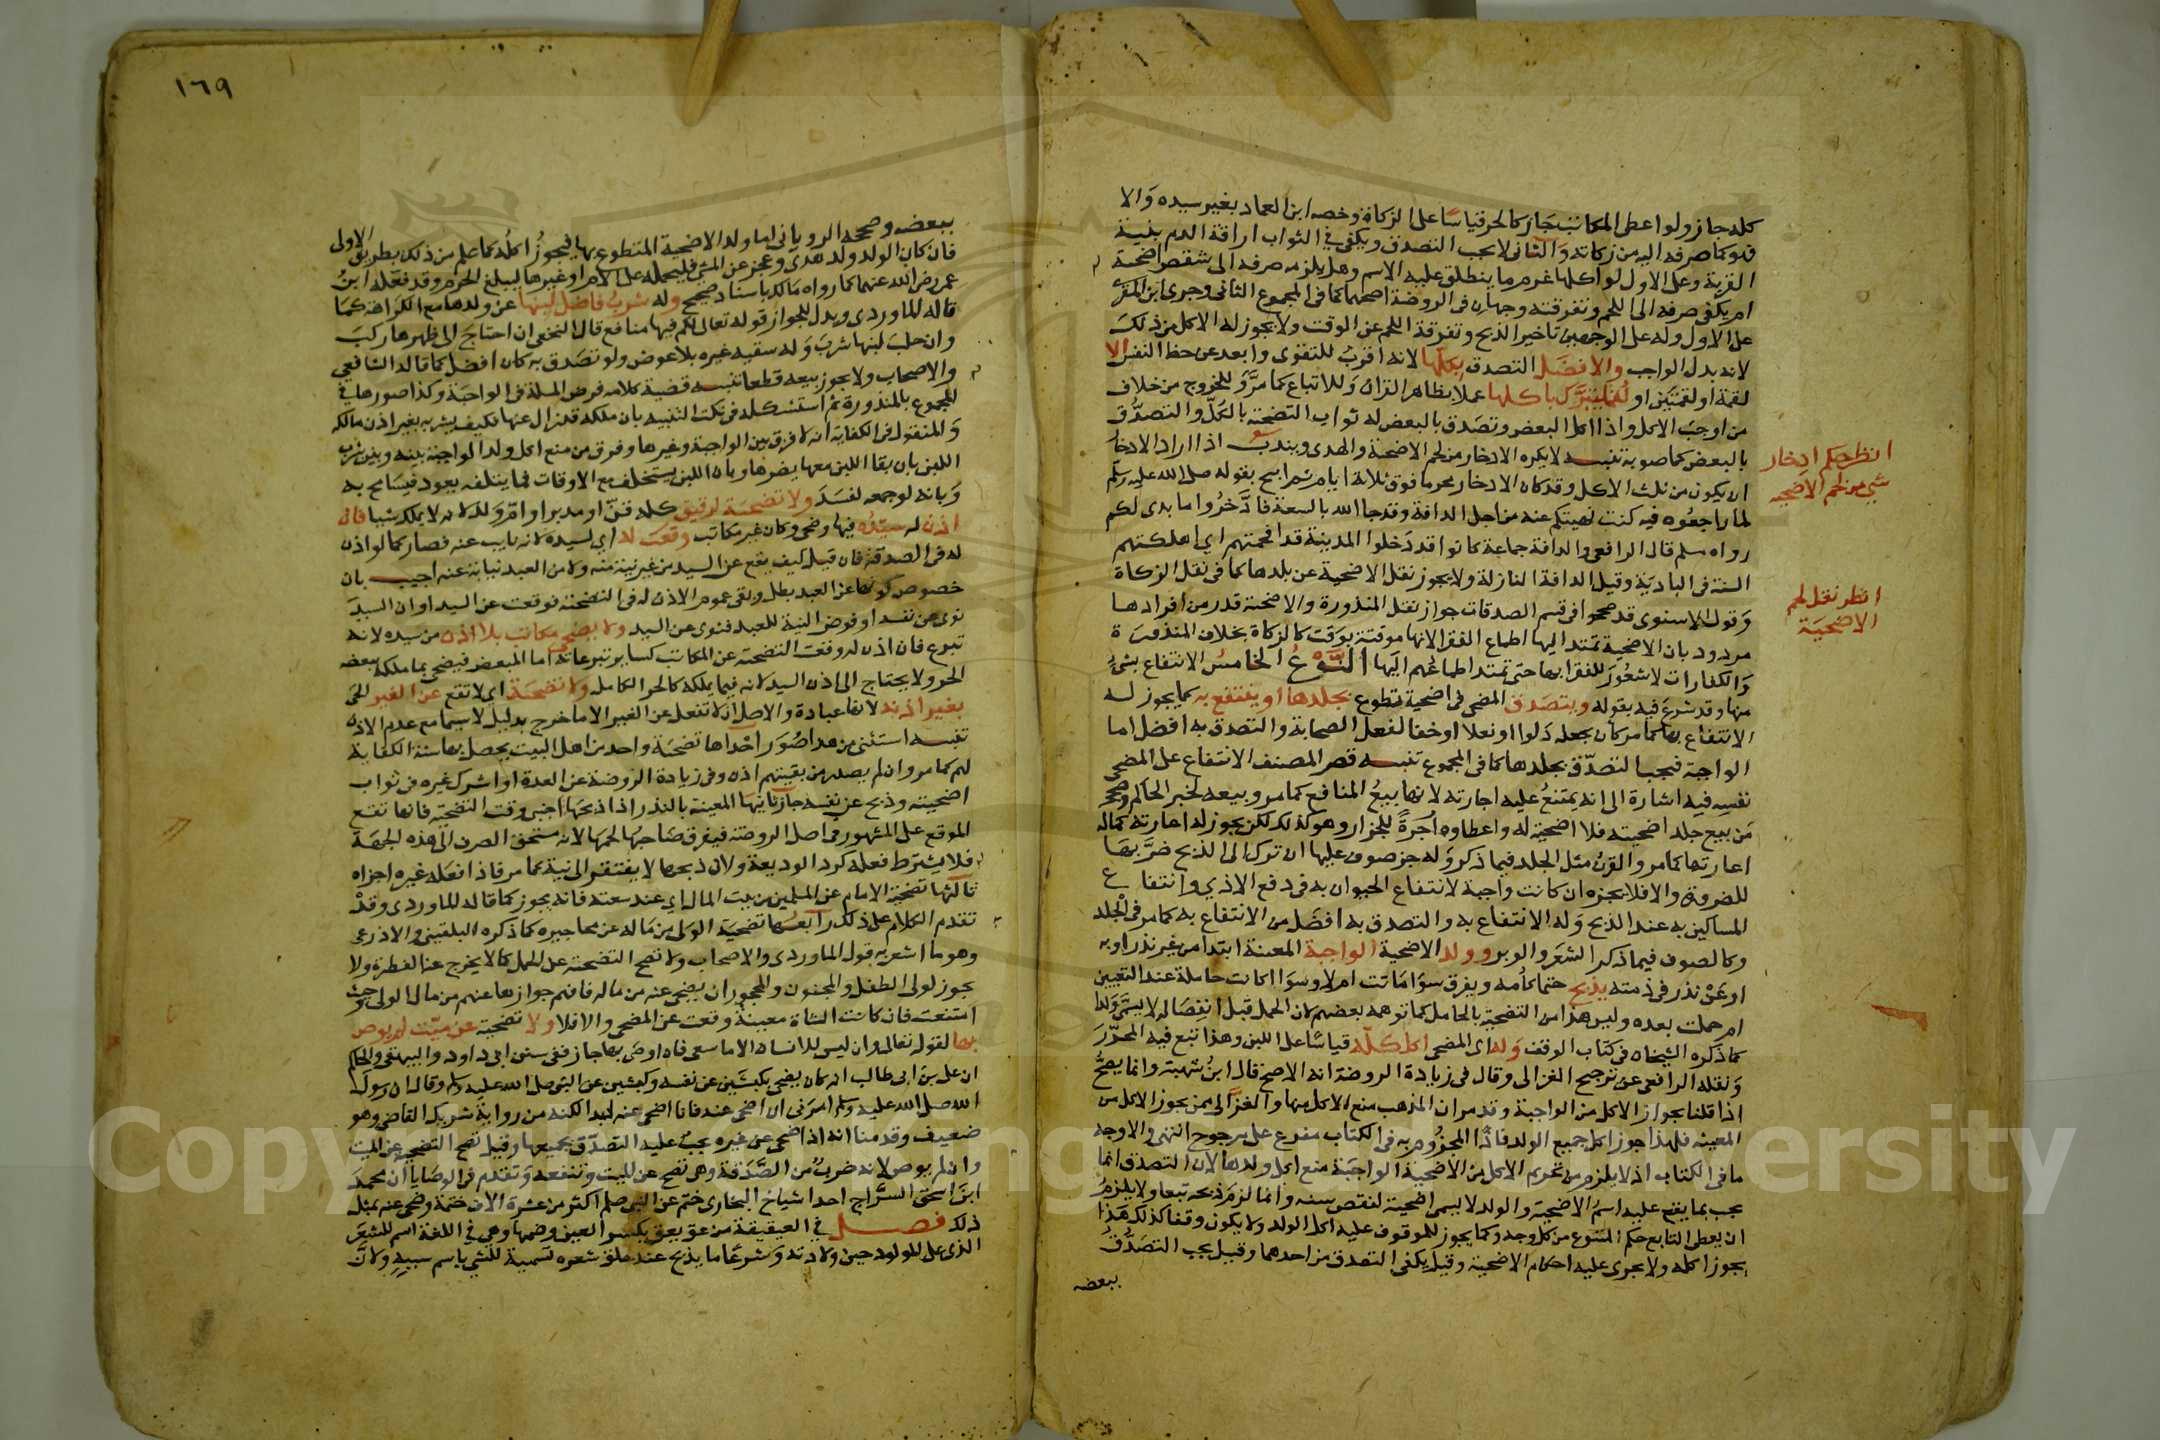 كله جاز ولو اعطى المكاتب جاز كالحر قياسا على الزكاة وخصه ابن العماد بغير سيده والا
فلو كما صرفه اليه من زكاته والثاني لا يجب التصدق ويكفي في الثواب اراقة الدم بنية
القربة وعلى الاول لو اكلها غرم ما ينطلق عليه الاسم وهل يلزمه صرفه الى شقص اضحية
ام يكفي صرفه الى اللحم وتفرقته وجهان في الروضة اصحهما كما في المجموع الثاني وجرى ابن المقري
على الاول وله على الوجهين تاخير الذبح وتفرقة اللحم عن الوقت ولا يجوز له الاكل من ذلك
لانه بدل الواجب والافضل التصدق بكلها لانه اقرب للتقوى وابعد عن حظ النفس الا
لقمة او لقمتين او لقما يتبرك باكلها عملا بظاهر القران وللاتباع كما مر وللخروج من خلاف
من اوجب الاكل واذا اكل البعض وتصدق بالبعض له ثواب التضحية بالكل والتصدق
بالبعض كما صوبه تنبيه لا يكره الادخار من لحم الاضحية والهدي ويندب اذا اراد الادخار
ان يكون من ثلث الاكل وقد كان الادخار محرما فوق ثلاثة ايام ثم ابيح بقوله صلى الله عليه وسلم
لما راجعوه فيه كنت نهيتكم عنه من اجل الدافة وقد جا الله بالسعة فادخروا ما بدى لكم
رواه مسلم قال الرافعي والدافة جماعة كانوا قد دخلوا المدينة قد اقحمتهم اي اهلكتهم
السنة في البادية وقيل الدافة النازلة ولا يجوز نقل الاضحية عن بلدها كما في نقل الزكاة
وقول الاسنوي قد صححوا في قسم الصدقات جواز نقل المنذورة والاضحية فرد من افرادها
مردود بان الاضحية تمتد اليها اطماع الفقرا لانها موقتة بوقت كالزكاة بخلاف المنذورة
والكفارات لا شعور للفقرا بها حتى تمتد اطماعهم اليها النوع الخامس الانتفاع بشئ
منها وقد شرع فيه بقوله ويتصدق المضحي في اضحية تطوع بجلدها او ينتفع به كما يجوز له
الانتفاع بها كما مر كان يجعله دلوا او نعلا او خفا لفعل الصحابة والتصدق به افضل اما
الواجبة فيجب التصدق بجلدها كما في المجموع تنبيه قصر المصنف الانتفاع على المضحي
نفسه فيه اشارة الى انه يمتنع عليه اجارته لانها بيع المنافع كما مر وبيعه لخبر الحاكم وصحح
من بيع جلد اضحيته فلا اضحية له واعطاوه اجرة للجزار وهو كذلك لكن يجوز له اعارته كما له
اعارتها كما مر والقرن مثل الجلد فيما ذكر وله جز صوف عليها ان ترك الى الذبح ضر بها
للضرورة والا فلا يجزه ان كانت واجبة لانتفاع الحيوان به في دفع الاذي وانتفاع
المساكين به عند الذبح وله الانتفاع به والتصدق به افضل من الانتفاع به كما مر في الجلد
وكالصوف فيما ذكر الشعر والوبر وولد الاضحية الواجبة المعينة ابتدا من غير نذر او به
او عن نذر في ذمته يذبح حتما كامه ويفرق سوا ماتت ام لا وسوا اكانت حاملة عند التعيين
ام حملت بعده وليس هذا من التضحية بالحامل كما توهمه بعضهم لان الحمل قبل انفصاله لا يسمى ولدا
كما ذكره الشيخان في كتاب الوقف وله اي المضحي اكل كله قياسا على اللبن وهذا تبع فيه المحرر
ونقله الرافعي عن ترجيح الغزالي وقال في زيادة الروضة انه الاصح قال ابن شهبة وانما يصح
اذا قلنا بجواز الاكل من الواجبة وقد مر ان المذهب منع الاكل منها والغزالي ممن يجوز الاكل من
المعينة فلهذا جوز اكل جميع الولد فاذا المجزوم به في الكتاب مفرع على مرجوح انتهى والاوجه
ما في الكتاب اذ لا يلزم من تحريم الاكل من الاضحية الواجبة منع اكل ولدها لان التصدق انما
يجب بما يقع عليه اسم الاضحية والولد لا يسمى اضحية لنقص سنه وانما لزم ذبحه تبعا ولا يلزم
ان يعطى التابع حكم المتبوع من كل وجه وكما يجوز للموقوف عليه اكل الولد ولا يكون وقفا كذلك هذا
يجوز اكله ولا يجري عليه احكام الاضحية وقيل يكفي التصدق من احدهما وقيل يجب التصدق
ببعضه
انظر حكم ادخار
شي من لحم الاضحيه
انظر نقل لحم
الاضحية
١٦٩
ببعضه وصححه الروياني اما ولد الاضحية المتطوع بها فيجوز اكله كما علم من ذلك بطريق الاولى
فان كان الولد ولد هدي وعجز عن المشي فليحمله على الام او غيرها ليبلغ الحرم وقد فعله ابن
عمر رضي الله عنهما كما رواه مالك باسناد صحيح وله شرب فاضل لبنها عن ولدها مع الكراهة كما
قاله الماوردي ويدل للجواز قوله تعالى لكم فيها منافع قال النخعي ان احتاج الى ظهرها ركب
وان حلب لبنها شرب وله سقيه غيره بلا عوض ولو تصدق به كان افضل كما قاله الشافعي
والاصحاب ولا يجوز بيعه قطعا تنبيه قضية كلامه فرض المسلة في الواجبة وكذا صورها في
المجموع بالمنذورة ثم استشكله في نكت التنبيه بان ملكه قد زال عنها فكيف يشربه بغير اذن مالكه
والمنقول في الكفاية انه لا فرق بين الواجبة وغيرها وفرق من منع اكل ولد الواجبة بينه وبين شرب
اللبن بان بقا اللبن معها يضرها وبان اللبن يستخلف مع الاوقات فما يتلفه يعود فيسامح به
وبانه لو جمعه لفسد ولا تضحية لرقيق كله قن او مدبر او ام ولد لانه لا يملك شيئا فان
اذن له سيده فيها وضحى وكان غير مكاتب وقعت له اي لسيده لانه نايب عنه فصار كما لو اذن
له في الصدقة فان قيل كيف يقع عن السيد من غير نية منه ولا من العبد نيابة عنه اجيب بان
خصوص كونها عن العبد بطل وبقي عموم الاذن له في التضحية فوقعت عن السيد او ان السيد
نوى عن نفسه او فوض النية للعبد فنوى عن السيد ولا يضحي مكاتب بلا اذن من سيده لانه
تبرع فان اذن له وقعت التضحية عن المكاتب كساير تبرعاته اما المبعض فيضحي بما ملكه ببعضه
الحر ولا يحتاج الى اذن السيد لانه فيما يملكه كالحر الكامل ولا تضحية اي لا تقع عن الغير الحي
بغير اذنه لانها عبادة والاصل ان لا تفعل عن الغير الا ما خرج بدليل لا سيما مع عدم الاذن
تنبيه استثنى من هذا صور احداها تضحية واحد من اهل البيت يحصل بها سنة الكفاية
لهم كما مر وان لم يصدر من بقيتهم اذن وفي زيادة الروضة عن العدة لو اشرك غيره في ثواب
اضحيته وذبح عن نفسه جاز ثانيها المعينة بالنذر اذا ذبحها اجنبي وقت التضحية فانها تقع
الموقع على المشهور في اصل الروضة فيفرق صاحبها لحمها لانه مستحق الصرف الى هذه الجهة
فلا يشترط فعله كرد الوديعة ولان ذبحها لا يفتقر الى نية كما مر فاذا فعله غيره اجزاه
ثالثها تضحية الامام عن المسلمين من بيت المال اي عند سعته فانه يجوز كما قاله الماوردي وقد
تقدم الكلام على ذلك رابعها تضحية الولي من ماله عن محاجيره كما ذكره البلقيني والاذرعي
وهو ما اشعر به قول الماوردي والاصحاب ولا تصح التضحية عن الحمل كما لا يخرج عنه الفطرة ولا
يجوز لولي الطفل والمجنون والمحجور ان يضحي عنه من ماله فافهم جوازها عنهم من مال الولي وحيث
امتنعت فان كانت الشاة معينة وقعت عن المضحي والا فلا ولا تضحية عن ميت لم يوص
بها لقوله تعالى وان ليس للانسان الا ما سعى فان اوصى بها جاز ففي سنن ابي داود والبيهقي والحاكم
ان علي بن ابي طالب انه كان يضحي بكبشين عن نفسه وكبشين عن النبي صلى الله عليه وسلم وقال ان رسول
الله صلى الله عليه وسلم امرني ان اضحي عنه فانا اضحي عنه ابدا لكنه من رواية شريك القاضي وهو
ضعيف وقدمنا انه اذا ضحى عن غيره يجب عليه التصدق بجميعها وقيل تصح التضحية عن الميت
وان لم يوص لانه ضرب من الصدقة وهي تصح عن الميت وتنفعه وتقدم في الوصايا ان محمد
ابن اسحق السراج احد اشياخ البخاري ختم عن النبي صلعم اكثر من عشرة الاف ختمة وضحى عنه بمثل
ذلك فصل في العقيقة من عق يعق بكسر العين وضمها وهي في اللغة اسم للشعر
الذي على المولود حين ولادته وشرعا ما يذبح عند حلق شعره تسمية للشي باسم سببه ولان